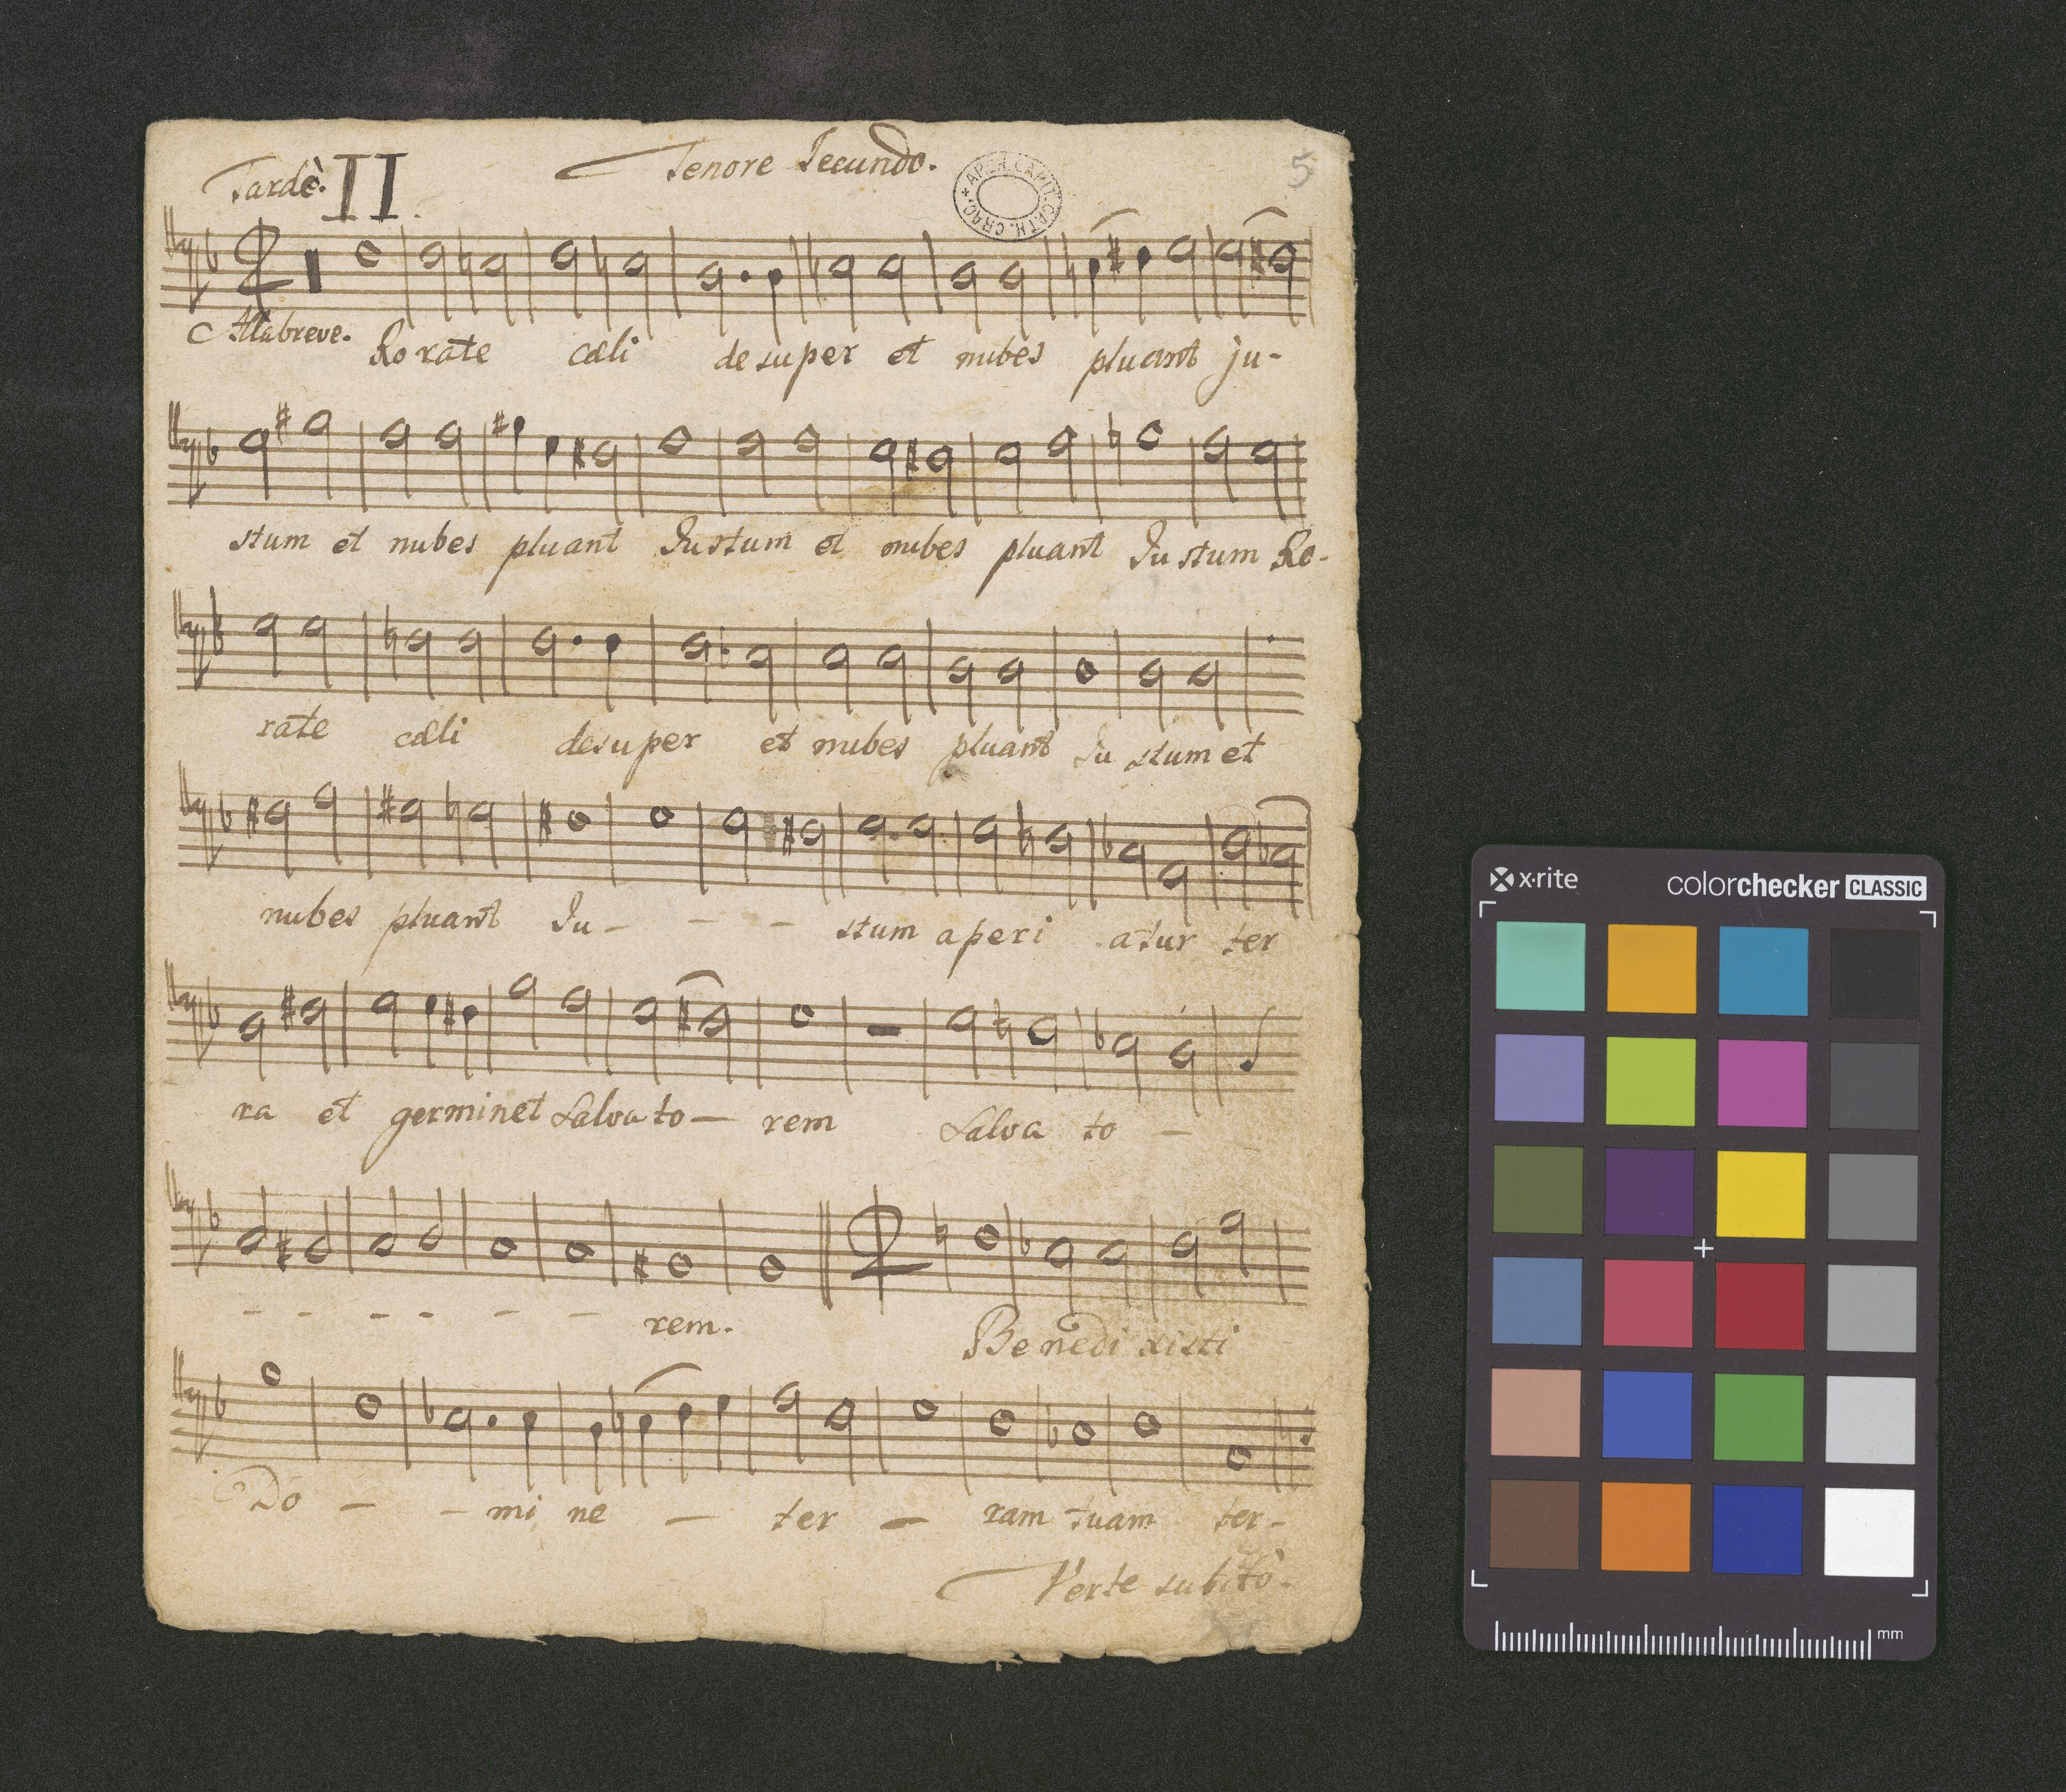 Tardè. II. Tenore Secundo. 5
* APER. CAPIT. CATH. CRAC.
Allabreve. Rorate cæli desuper et nubes pluant ju-
stum et nubes pluant Justum et nubes pluant Justum Ro-
rate cæli desuper et nubes pluant Ju stum et
nubes pluant Ju - - - stum aperi atur ter
ra et germinet Salvato - rem Salva to -
- - - - - - rem. Benedi xisti
Do - - mi ne - ter - ram tuam ter-
Verte subitò.
x·rite colorchecker CLASSIC
mm